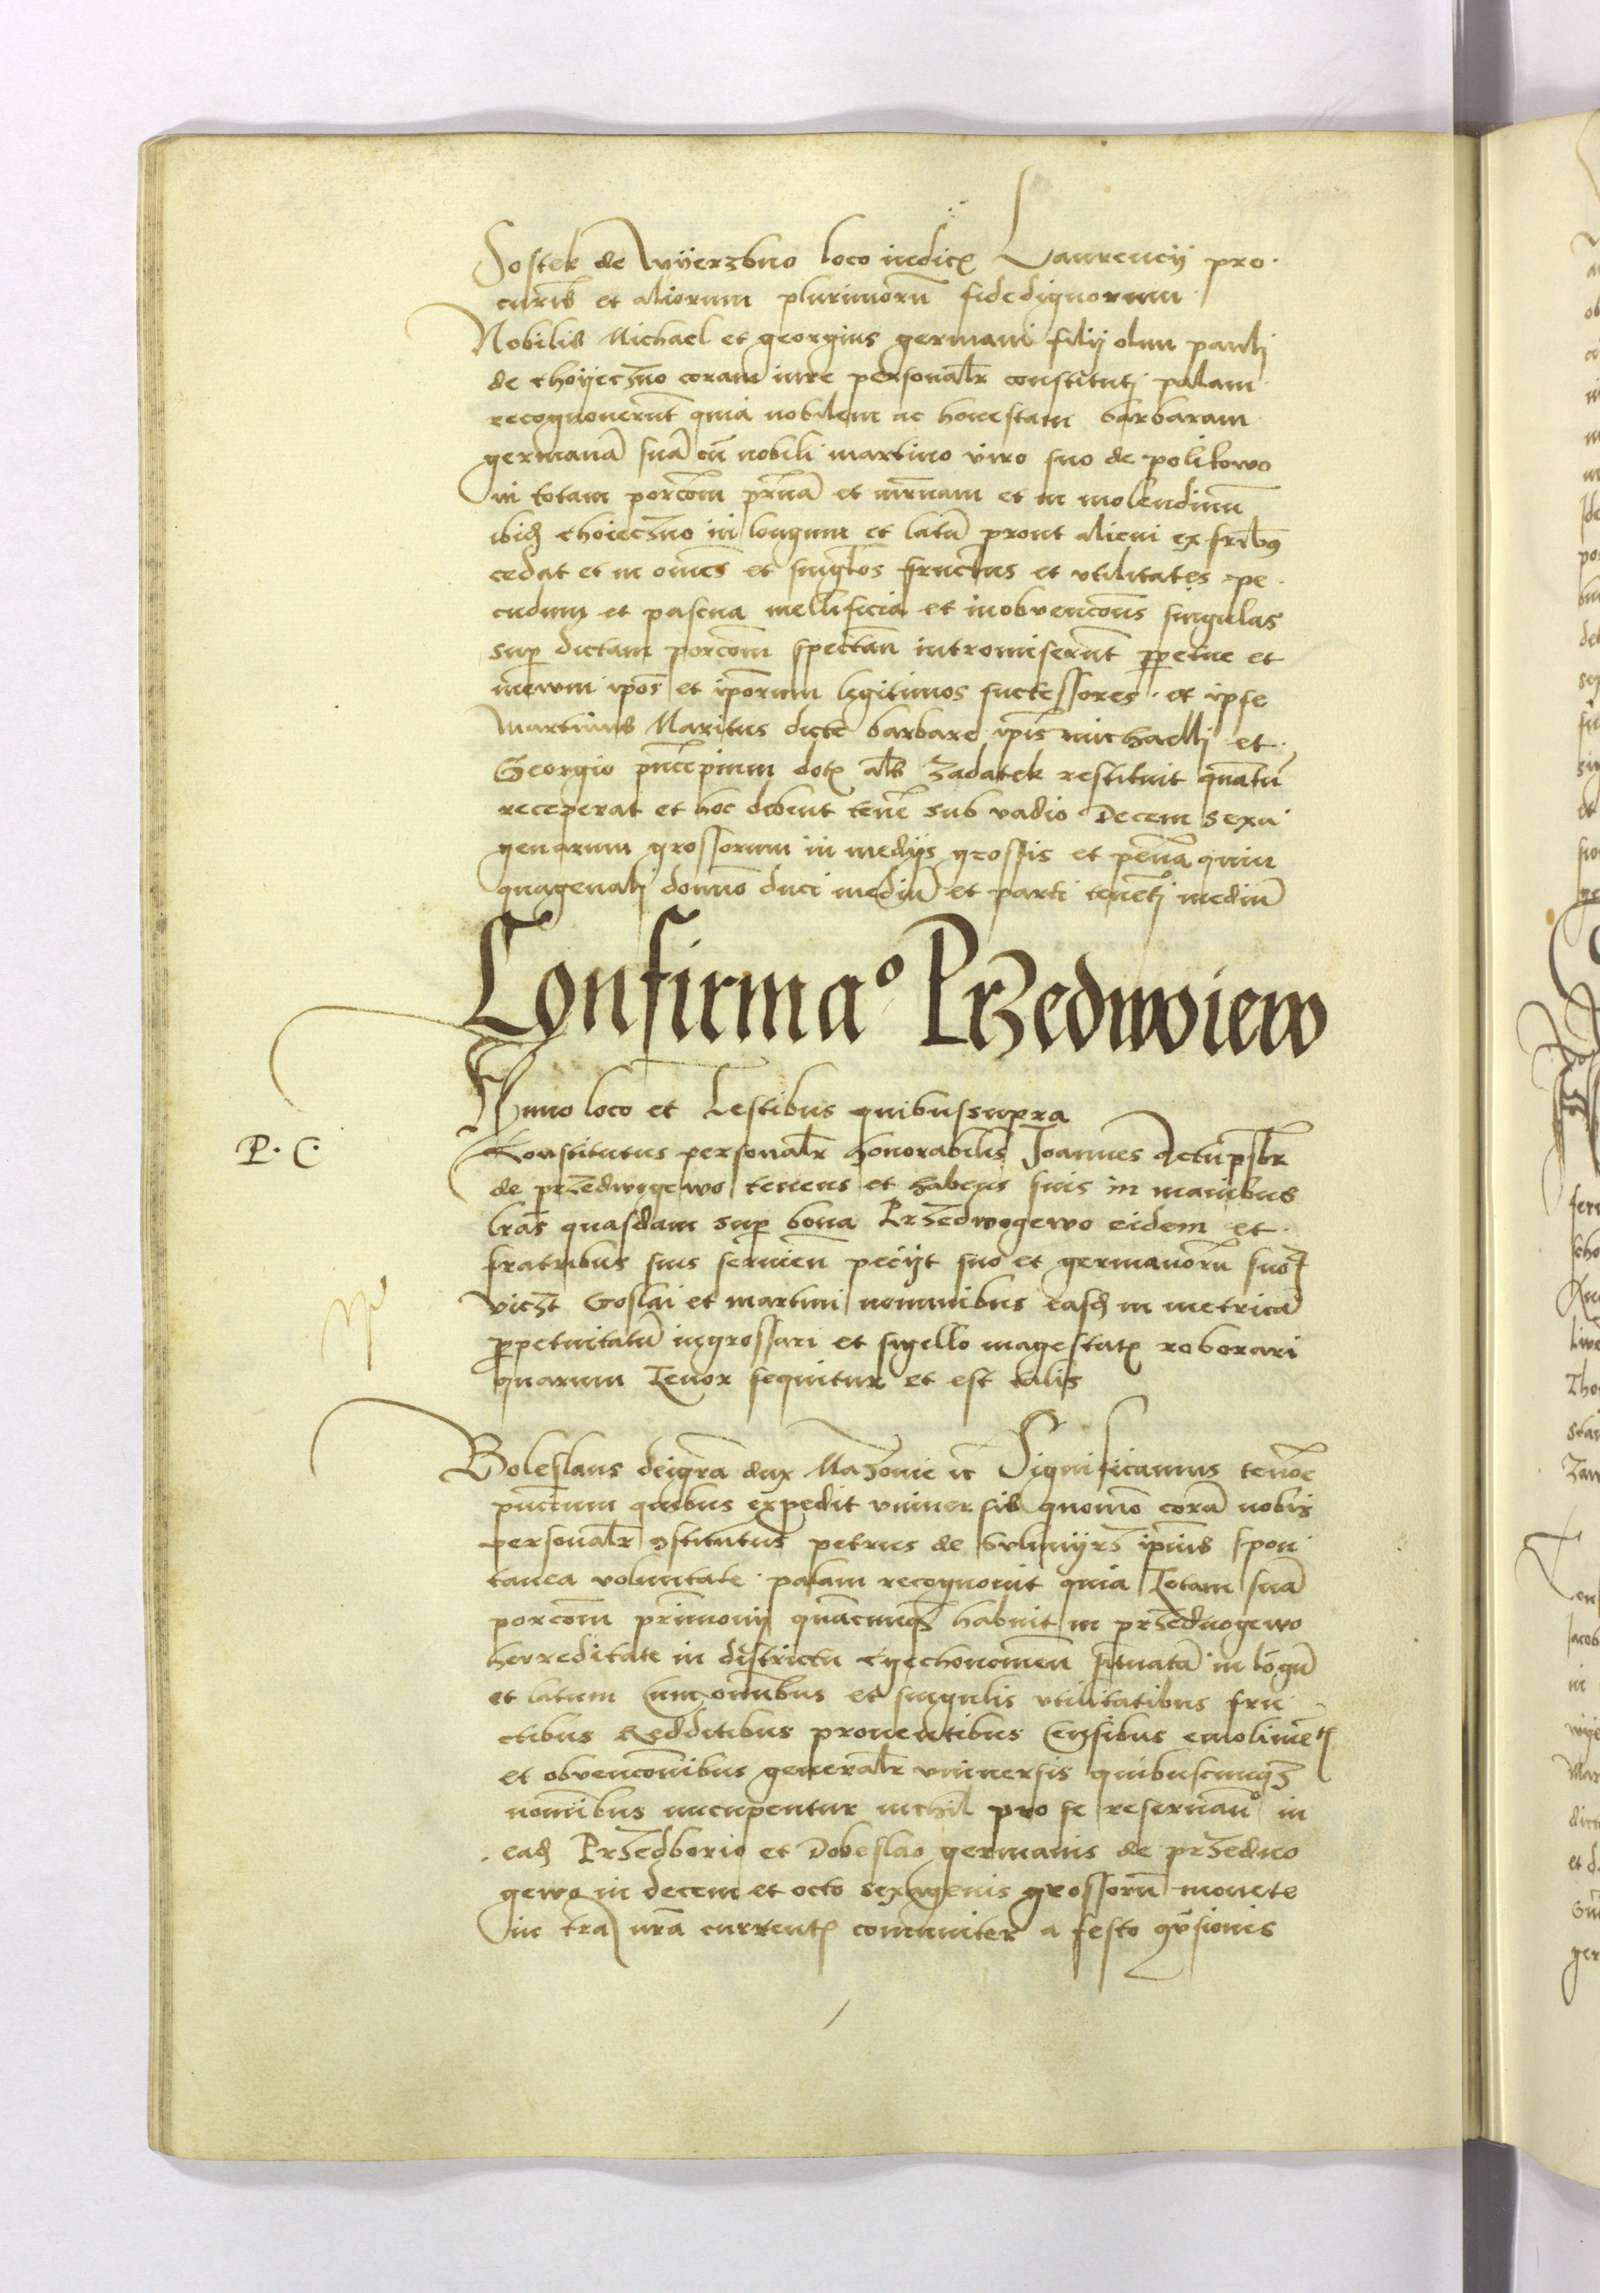 Sostek de Wyerzbno loco iudic Laurencÿ pro
curis et aliorum plurimorū fidedignorum
Nobilis Michael et georgius germani filÿ olim pauli
de thoÿeczno coram iure personalr constituti palam
recognouerūt quia nobilem ac honestam barbaram
germanā suā cū nobili martino viro suo de politowo
in totam porcōm pr̄nā et mr̄nam et in molendinū
ibid thoieczno in longum et latū prout alicui ex frībus
cedat et in om̄es et singlos fructus et vtilitates pe
cudum et pascua mellificia et in obvencōns singulas
sup dictam porcōm spectan intromiserūt ppetue et
in ewm ipōs et ipōrum legitimos successores et ipse
martinus Maritus dicte barbare ipīs michaelli et
Georgio pn̄cipium dot als Zadatek restituit qn̄atū
receperat et hoc debent tenē sub vadio Decem sexa
genarum grossorum in medÿs grossis et pēna quin
quagenali domno duci mediū et parti tenēti mediū
Confirmaº Przedwoiew
Anno loco et Testibus quibus supra
P. C.
Constitutus personalr honorabilis Joannes Actu psbr
de przedwogewo tenens et habens suis in manibus
lrās quasdam sup bona Przedwogewo eidem et
fratribus suis seruien peciit suo et germanorū suoꝝ
viczt Goslai et martini nominibus easd in metricā
ppetuitatū ingrossari et sigello magestat roborari
quarum Tenor sequitur et est talis
Boleslaus dei grā dux Mazouie ꝛc Significamus tenōe
pn̄cium quibus expedit vniuersis quomō corā nobis
personalr ꝯstitutus petrus de ipīus spon
tanea voluntate palam recognouit quia Totam suā
porcōm prīmonÿ quācunqz habuit in przeduogewo
herreditate in districtu Cyechonomen situatā in lōgū
et latum cum omnibus et singulis vtilitatibus fru
ctibus Redditibus prouentibus Censibus emolimēt
et obvencōnibus generalr vniuersis quibuscunqz
nomībus nucupentur nichil pro se reseruanº in
ead Przedborio et Dobeslao germanis de przeduo
gewo in decem et octo sexagenis grossorū monete
in trā nrā current comuniter a festo ꝯūsionis